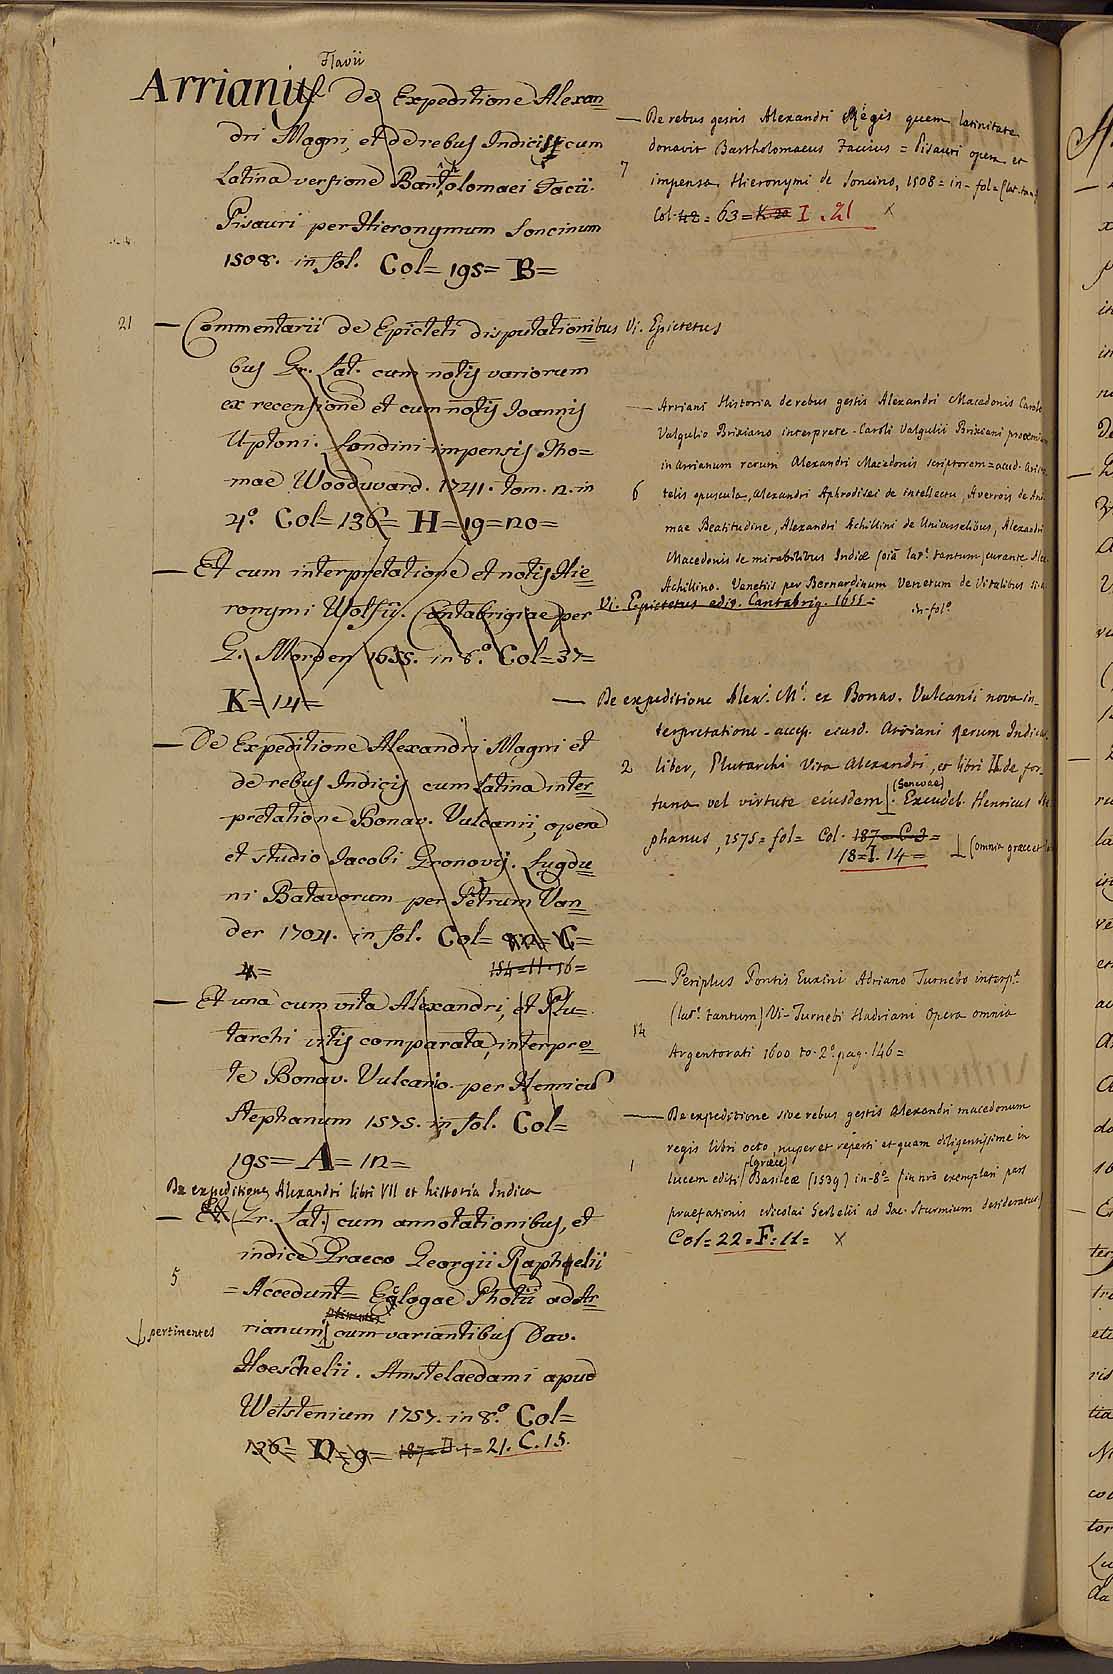 Flavii
Arrianus De Expeditione Alexan=
dri Magni, et de rebus Indicis cum
Latina versione Bartolomaei Facii.
Pisauri per Hieronymum Soncinum
1508. in fol. Col= 195= B=
21 — Commentarii de Epicteti disputationibus
bus Gr. Lat. cum notis variorum
ex recensione et cum notis Joannis
Uptoni. Londini impensis Tho=
mae Wooduvard. 1741. Tom. 2. in
4.º Col= 136= H= 19= 20=
— Et cum interpretatione et notis Hie=
ronymi Wolfii. Cantabrigiae per
G. Morden 1655. in 8.º Col= 37=
K= 14=
— De Expeditione Alexandri Magni et
de rebus Indicis cum Latina inter=
pretatione Bonav. Vulcanii, opera
et studio Jacobi Gronovij. Lugdu=
ni Batavorum per Petrum Van=
der 1704. in fol. Col= C=
4= 184=11.16=
— Et una cum vita Alexandri, et Plu=
tarchi comparata, interpre=
te Bonav. Vulcanio. per Henricum
Stephanum 1575. in fol. Col=
195= A= 12=
De expeditione Alexandri libri VII et historia Indica
— Et (Gr. Lat.) cum annotationibus, et
indice Graeco Georgii Raphelii
5 = Accedunt= Eclogae Photii ad Ar=
pertinentes rianum cum variantibus Dav.
Hoeschelii. Amstelaedami apud
Wetstenium 1757. in 8.º Col=
136= D= 9= 187= D 4= 21. C. 15.
— De rebus gestis Alexandri Regis quem latinitate
donavit Bartholomaeus Facius = Pisauri opera et
7 impensa Hieronymi de Soncino, 1508= in-fol=
Col. 48= 63= I. 21 X
Vi. Epictetus
— Arriani Historia de rebus gestis Alexandri Macedonis Carolo
Valgulio Brixiano interprete - Caroli Valgulii Brixiani prooemium
in Arrianum rerum Alexandri Macedonis scriptorem = acced. Aristo
6 telis opuscula, Alexandri Aphrodisei de intellectu, Averrois de Ani
mae Beatitudine, Alexandri Achillini de Universalibus, Alexandri
Macedonis de mirabilibus Indiæ lat.e tantum, curante Alex
Achillino. Venetiis per Bernardinum Venetum de Vitalibus
in-folº
Vi. Epictetus edit. Cantabrig. 1655=
— De expeditione Alex.i M.i ex Bonav. Vulcanii nova in-
terpretatione - acced. eiusd. Arriani rerum Indicar.
2 liber, Plutarchi Vita Alexandri, et libri II de for-
tuna vel virtute eiusdem. (Genevae) Excudeb. Henricus Ste
phanus, 1575= fol= Col. 187= C. 3=
18= I. 14= (omnia græce et
— Periplus Pontis Euxini Adriano Turnebo interp.te
(lat.e tantum) Vi- Turnebi Hadriani Opera omnia
14 Argentorati 1600 to. 2.º pag. 146=
— De expeditione sive rebus gestis Alexandri macedonum
regis libri octo nuper et reperti et quam diligentissime in
1 lucem editi (græce) Basileæ (1539) in-8º (in nro exemplari pars
praefationis Nicolai Gerbelii ad Jac. Sturmium desideratur)
Col= 22= F: 11= X